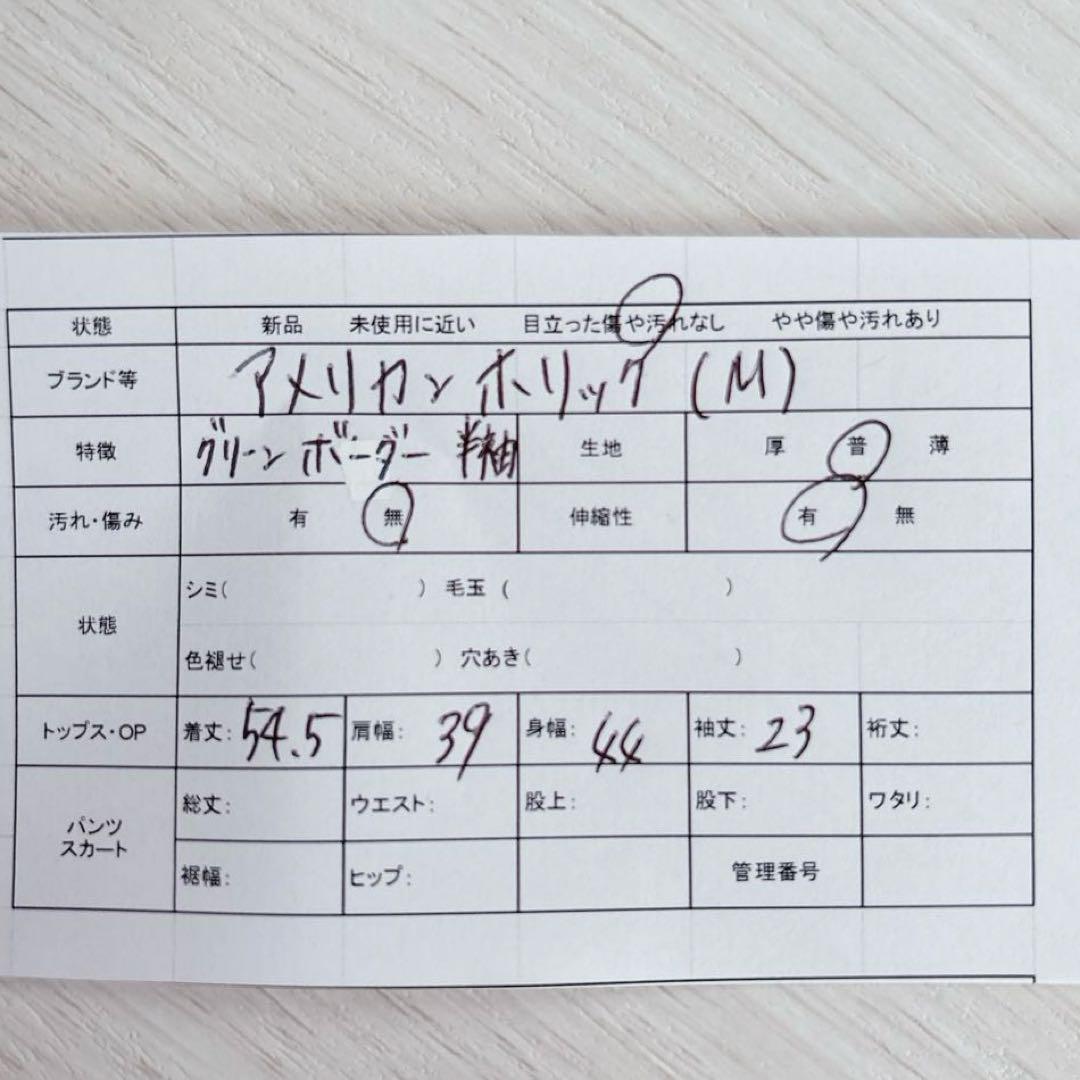 状態 新品 未使用に近い 目立った傷や汚れなし やや傷や汚れあり
ブランド等 アメリカンホリック (M)
特徴 グリーン ボーダー 半袖 生地 厚 普 薄
汚れ・傷み 有 無 伸縮性 有 無
状態 シミ( ) 毛玉 ( )
色褪せ( ) 穴あき( )
トップス・OP 着丈: 54.5 肩幅: 39 身幅: 44 袖丈: 23 裄丈:
パンツ スカート 総丈: ウエスト: 股上: 股下: ワタリ:
裾幅: ヒップ: 管理番号